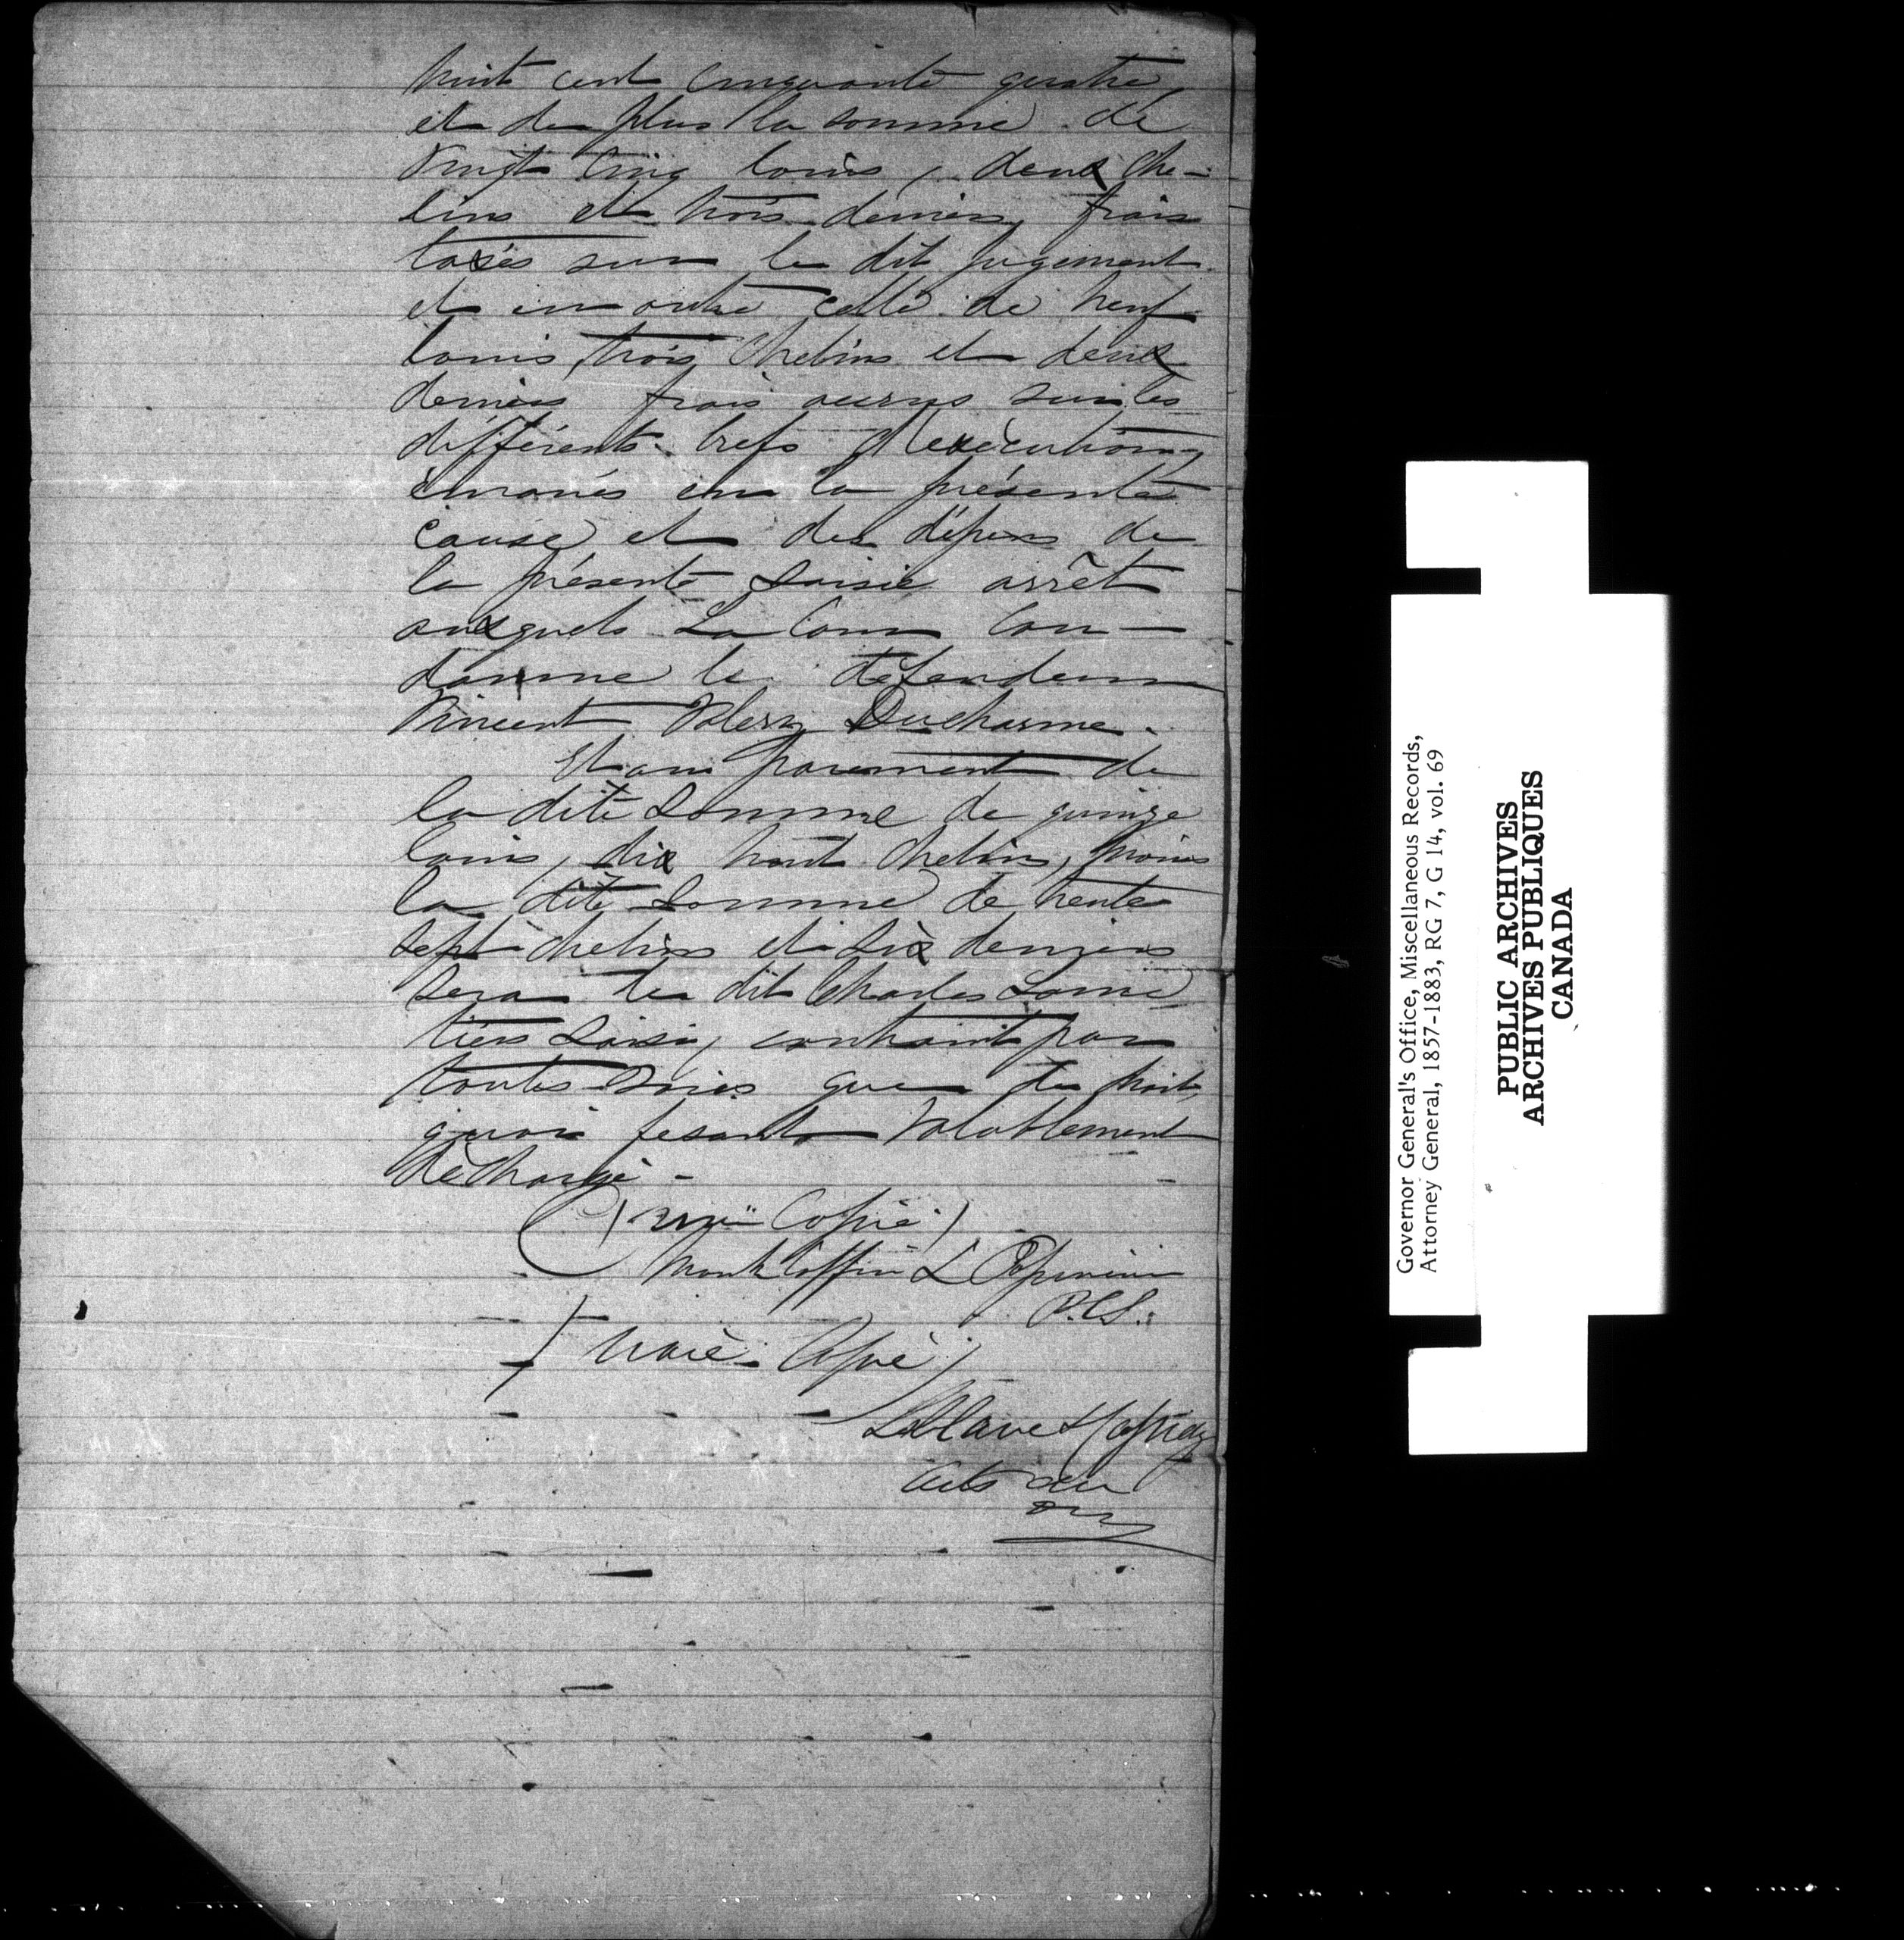 huit cent cinquante quatre
et de plus la somme de
vingt cinq louis, deux che-
lins et trois deniers, frais
taxés sur le dit jugement
et en outre celle de neuf
louis, trois chelins et deux
deniers frais accrus sur les
différents brefs d'exécution,
émanés en la présente
cause et des dépens de
la présente saisie arrêt
auxquels La Cour Con-
damne le défendeur
Vincent Valery Ducharme.
Et au paiement de
la dite Somme de quinze
louis, dix huit chelins, moins
la dite Somme de trente
sept chelins et six deniers
sera le dit Charles
tiers Saisi, contraint par
toutes voies que de droit,
quoi fesant valablement
déchargé -
(vraie Copie)
Monk Coffin & Papineau
P.C.S.
(vraie Copie)
Leblanc &
Avts du
Governor General's Office, Miscellaneous Records,
Attorney General, 1857-1883, RG 7, G 14, vol. 69
PUBLIC ARCHIVES
ARCHIVES PUBLIQUES
CANADA